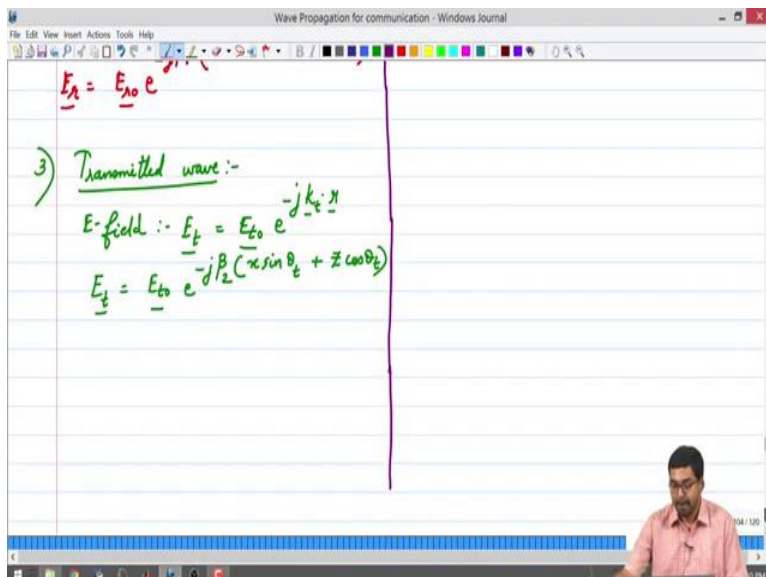 Wave Propagation for communication - Windows Journal
File Edit View Insert Actions Tools Help
E_r = E_{r0} e^{-jβ_1(
3) Transmitted wave :-
E-field :- E_t = E_{t0} e^{-j k_t · r}
E_t = E_{t0} e^{-jβ_2 (x sin θ_t + z cos θ_t)}
104 / 120